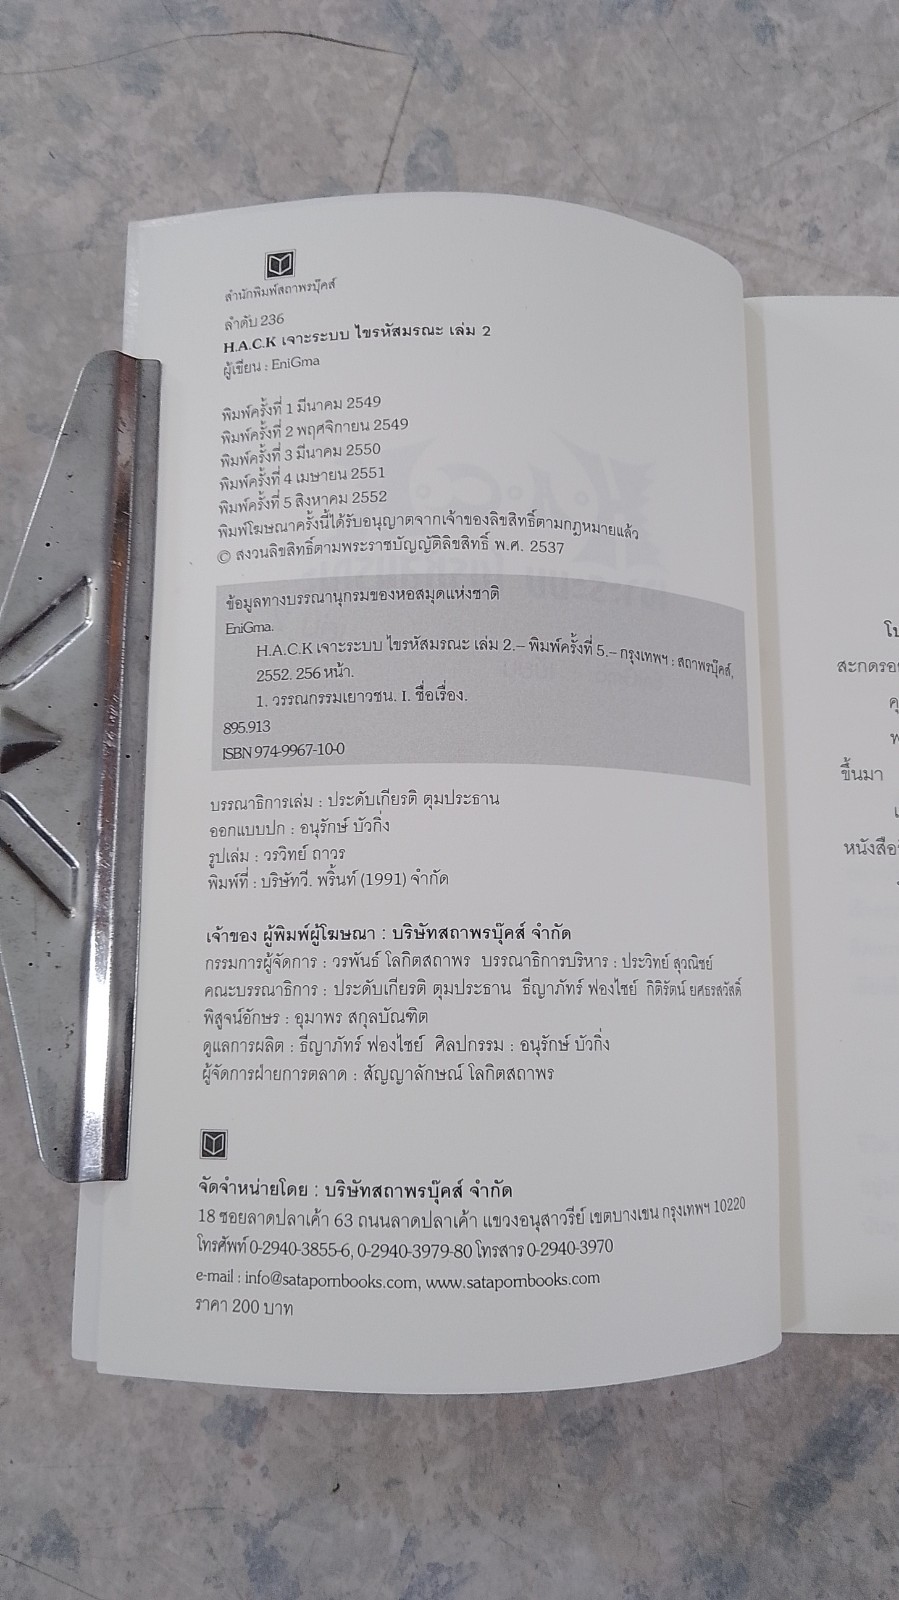 สำนักพิมพ์สถาพรบุ๊คส์
ลำดับ 236
H.A.C.K เจาะระบบ ไขรหัสมรณะ เล่ม 2
ผู้เขียน : EniGma
พิมพ์ครั้งที่ 1 มีนาคม 2549
พิมพ์ครั้งที่ 2 พฤศจิกายน 2549
พิมพ์ครั้งที่ 3 มีนาคม 2550
พิมพ์ครั้งที่ 4 เมษายน 2551
พิมพ์ครั้งที่ 5 สิงหาคม 2552
พิมพ์โฆษณาครั้งนี้ได้รับอนุญาตจากเจ้าของลิขสิทธิ์ตามกฎหมายแล้ว
© สงวนลิขสิทธิ์ตามพระราชบัญญัติลิขสิทธิ์ พ.ศ. 2537
ข้อมูลทางบรรณานุกรมของหอสมุดแห่งชาติ
EniGma.
H.A.C.K เจาะระบบ ไขรหัสมรณะ เล่ม 2.– พิมพ์ครั้งที่ 5.– กรุงเทพฯ : สถาพรบุ๊คส์,
2552. 256 หน้า.
1. วรรณกรรมเยาวชน. I. ชื่อเรื่อง.
895.913
ISBN 974-9967-10-0
บรรณาธิการเล่ม : ประดับเกียรติ ตุมประธาน
ออกแบบปก : อนุรักษ์ บัวกิ่ง
รูปเล่ม : วรวิทย์ ถาวร
พิมพ์ที่ : บริษัทวี. พริ้นท์ (1991) จำกัด
เจ้าของ ผู้พิมพ์ผู้โฆษณา : บริษัทสถาพรบุ๊คส์ จำกัด
กรรมการผู้จัดการ : วรพันธ์ โลกิตสถาพร บรรณาธิการบริหาร : ประวิทย์ สุวณิชย์
คณะบรรณาธิการ : ประดับเกียรติ ตุมประธาน ธีญาภัทร์ ฟองไชย์ กิติรัตน์ ยศธรสวัสดิ์
พิสูจน์อักษร : อุมาพร สกุลบัณฑิต
ดูแลการผลิต : ธีญาภัทร์ ฟองไชย์ ศิลปกรรม : อนุรักษ์ บัวกิ่ง
ผู้จัดการฝ่ายการตลาด : สัญญาลักษณ์ โลกิตสถาพร
จัดจำหน่ายโดย : บริษัทสถาพรบุ๊คส์ จำกัด
18 ซอยลาดปลาเค้า 63 ถนนลาดปลาเค้า แขวงอนุสาวรีย์ เขตบางเขน กรุงเทพฯ 10220
โทรศัพท์ 0-2940-3855-6, 0-2940-3979-80 โทรสาร 0-2940-3970
e-mail : info@satapornbooks.com, www.satapornbooks.com
ราคา 200 บาท
ขึ้นมา